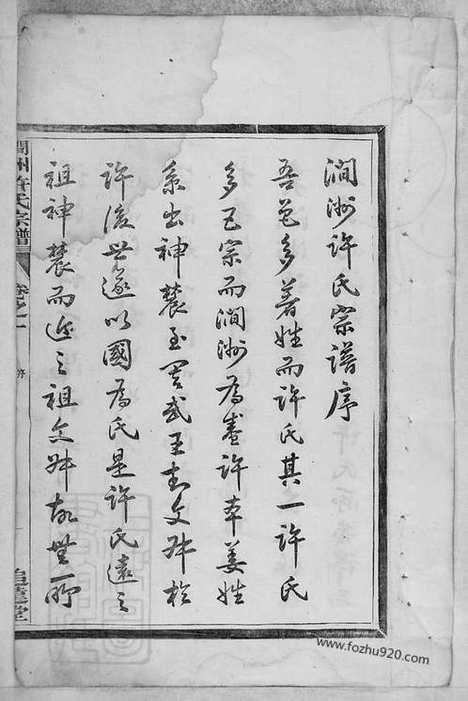 澗洲許氏宗譜序
吾邑多著姓而許氏其一許氏
多巨宗而澗洲為甚許本姜姓
系出神農至周武王封文叔於
許後世遂以國為氏是許氏遠之
祖神農而近之祖文叔故無所
澗洲許氏宗譜
卷之一
序
追遠堂
www.fozhu920.com